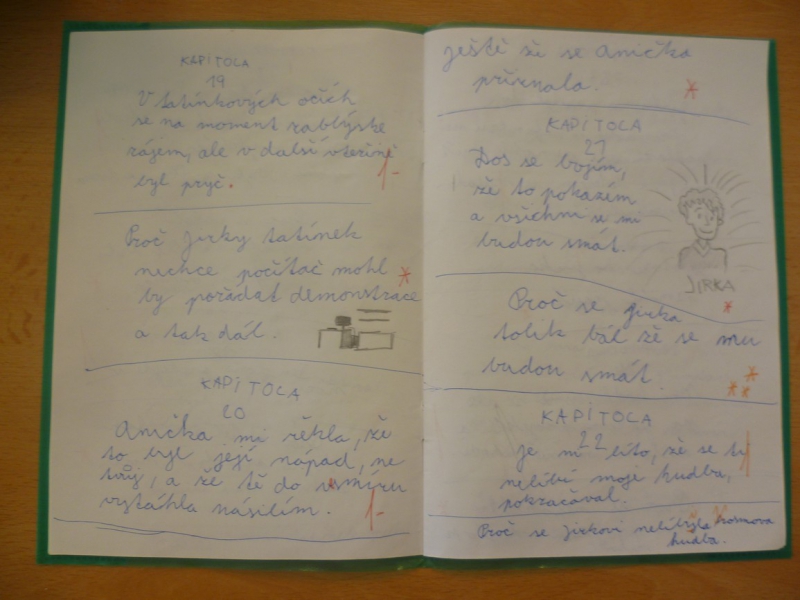 KAPITOLA
19
V tatínkových očích
se na moment zablýskl
zájem, ale v další vteřině
byl pryč.
1-
Proč Jirky tatínek
nechce počítač mohl
by pořádat demonstrace
a tak dál.
KAPITOLA
20
Anička mi řekla, že
to byl její nápad, ne
tvůj, a že tě do vesmíru
vytáhla násilím.
1-
ještě že se Anička
přiznala.
KAPITOLA
21
Dos se bojím,
že to pokazím
a všichni se mi
budou smát.
JIRKA
Proč se Jirka
tolik bál že se mu
budou smát.
KAPITOLA
22
je mi líto, že se ti
nelíbí moje hudba,
pokračoval.
Proč se Jirkovi nelíbila kosmova
hudba.